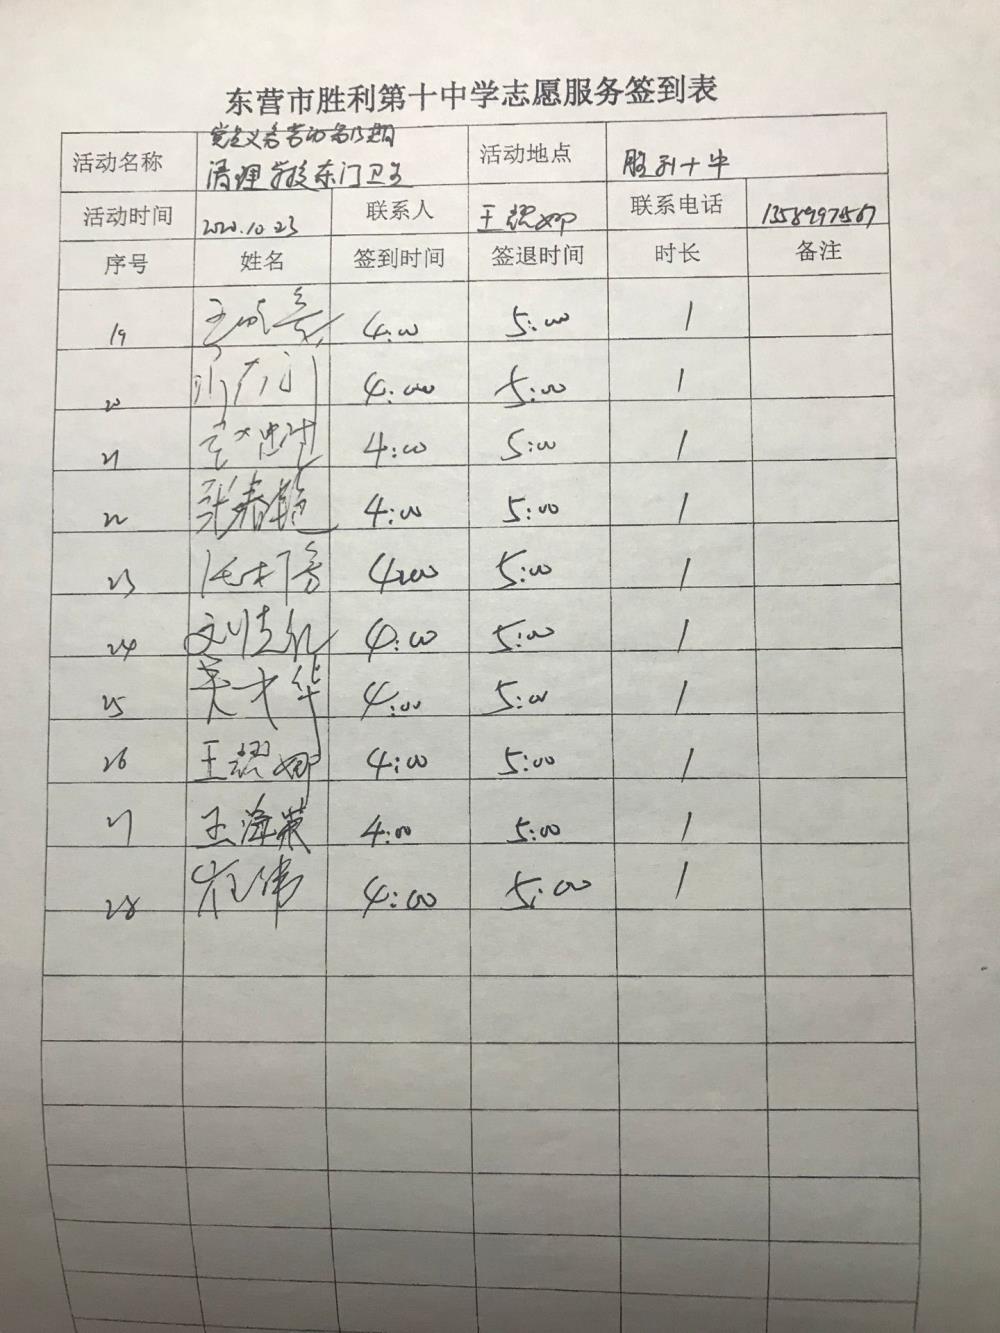 东营市胜利第十中学志愿服务签到表
活动名称 党员义务劳动 活动地点 胜利十中
清理学校东门卫生
活动时间 2020.10.23 联系人 王耀娜 联系电话
序号 姓名 签到时间 签退时间 时长 备注
19 4:00 5:00 1
20 4:00 5:00 1
21 4:00 5:00 1
22 张春艳 4:00 5:00 1
23 4:00 5:00 1
24 4:00 5:00 1
25 吴才华 4:00 5:00 1
26 王耀娜 4:00 5:00 1
27 王海英 4:00 5:00 1
28 崔伟 4:00 5:00 1